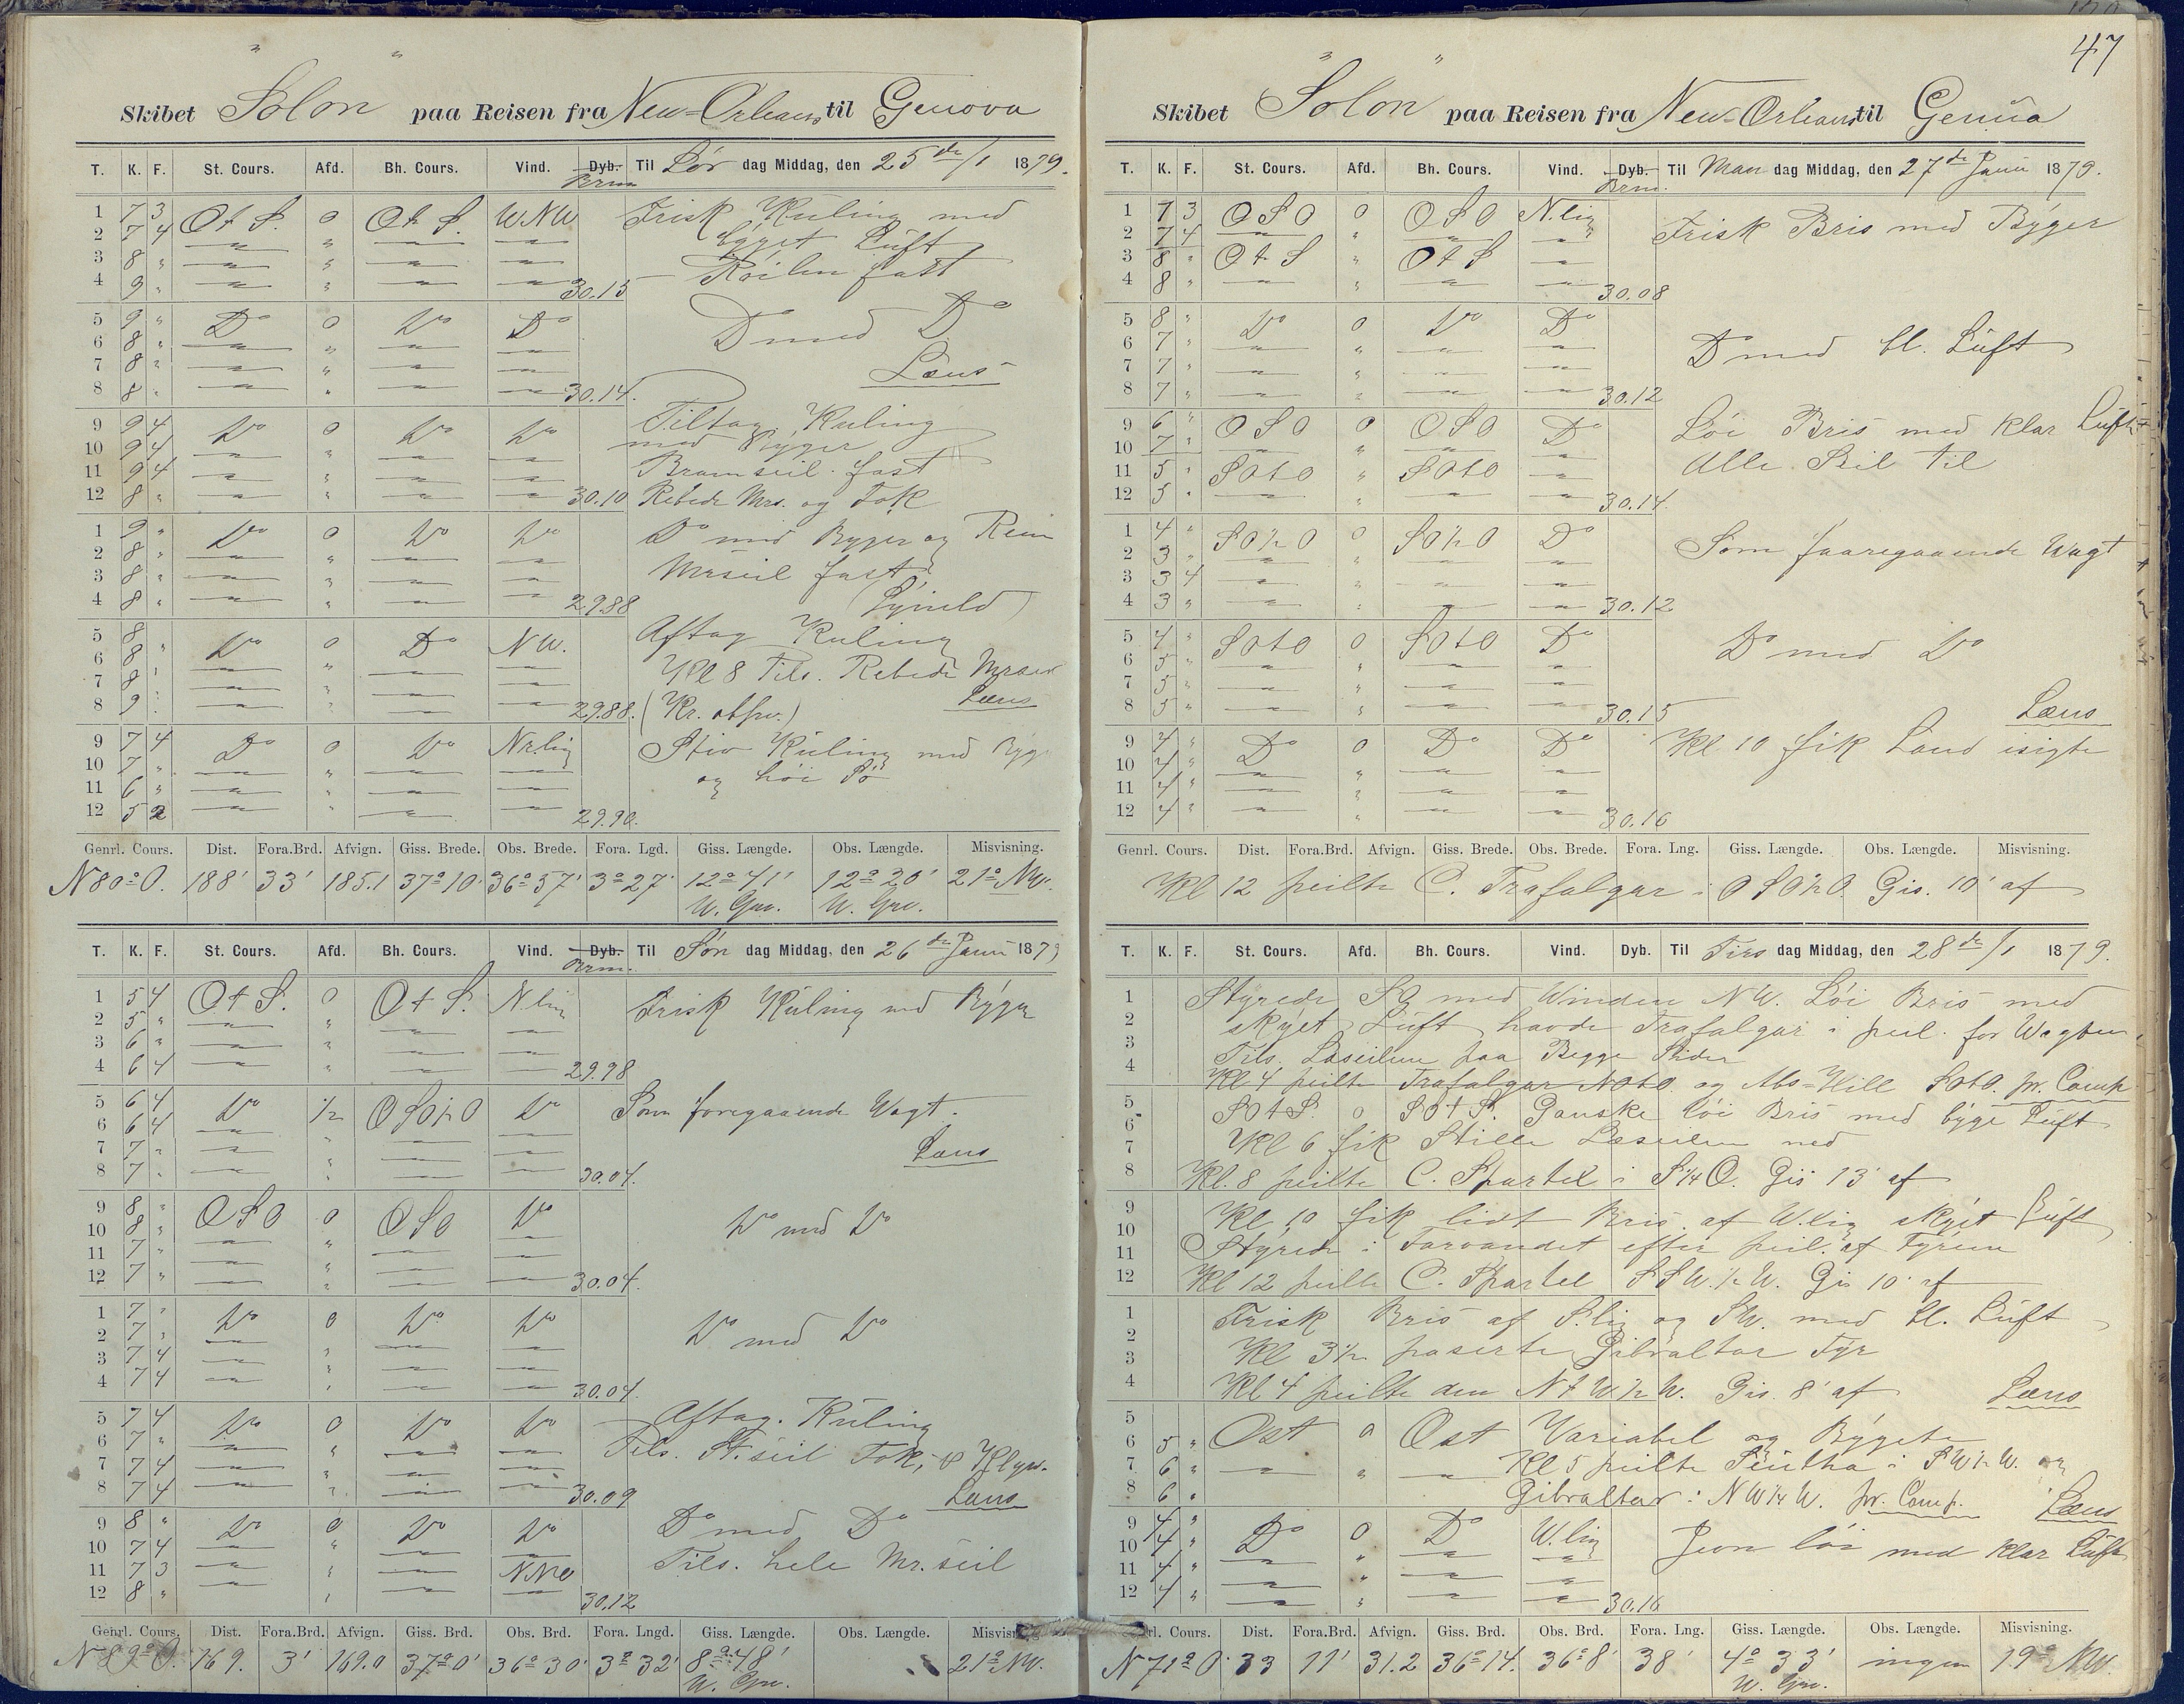 47
Skibet "Solon" paa Reisen fra New-Orleans til Genova
T. K. F. St. Cours. Afd. Bh. Cours. Vind. Dyb. Brm Til Lør dag Middag, den 25de/1 1879.
1 7 3 Ot S. 0 Ot S. WNW Frisk Kuling med
2 7 4 " byget Luft
3 8 " " Røilen fast
4 9 " " 30.15
5 9 " Do 0 Do Do Do med Do
6 8 " "
7 8 " " Læns
8 8 " " 30.14.
9 9 4 Do 0 Do Do Tiltag. Kuling
10 9 4 " med Byger
11 9 4 " Bramseil fast
12 8 " " 30.10 Rebede Mrs. og Fok
1 9 " Do 0 Do Do Do med Byger og Rein
2 8 " " Mrseil fast
3 8 " "
4 8 " " 29.88
5 8 Do 0 Do NW. Aftag Kuling
6 8 " " Kl 8 Tils. Rebede Mrseil
7 8 " "
8 9 " 29.88. (Kr. obsrv.) Læns
9 7 4 Do 0 Do Nrlig Stiv Kuling med Byg
10 7 " " og høi Sø
11 6 " "
12 5 2 " 29.90.
Genrl. Cours. Dist. Fora.Brd. Afvign. Giss. Brede. Obs. Brede. Fora. Lgd. Giss. Længde. Obs. Længde. Misvisning.
N80°O. 188' 33' 185.1 37°10' 36°57' 3°27' 12°41' 12°20' 21° NW.
W. Grw. W. Grw.
T. K. F. St. Cours. Afd. Bh. Cours. Vind. Dyb. Brm. Til Søn dag Middag, den 26de Janu 1879
1 5 4 Ot S. 0 Ot S. N.lig Frisk Kuling med Byger
2 5 " "
3 6 " "
4 6 4 " 29.98
5 6 4 Do 1/2 OSO1/2O Do Som foregaaende Vagt.
6 6 4 "
7 7 " " Læns
8 7 " " 30.04.
9 8 " OSO 0 OSO Do Do med Do
10 8 " "
11 7 " "
12 7 " " 30.04.
1 7 " Do 0 Do Do Do med Do
2 7 " "
3 7 4 "
4 7 4 " 30.04.
5 7 4 Do 0 Do Do Aftag. Kuling
6 7 " " Tils. St.seil Fok, & Klyv.
7 7 4 "
8 7 4 " 30.09 Læns
9 8 " Do 0 Do Do Do med Do
10 7 4 " Tils. hele Mr. seil
11 7 3 " NNO
12 8 " " 30.12
Genrl. Cours. Dist. Fora.Brd. Afvign. Giss. Brd. Obs. Brd. Fora. Lngd. Giss. Længde. Obs. Længde.
N89°O. 169. 3' 169.0 37°0' 36°30' 3°32' 8°48' 21° NW.
W. Grw.
Skibet "Solon" paa Reisen fra New-Orleans til Genua
T. K. F. St. Cours. Afd. Bh. Cours. Vind. Dyb. Brm. Til Man dag Middag, den 27de Janu 1879.
1 7 3 OSO 0 OSO N.lig Frisk Bris med Byger
2 7 4 "
3 8 " Ot S " Ot S
4 8 " 30.08
5 8 " Do 0 Do Do Do med bl. Luft
6 7 " "
7 7 " "
8 7 " " 30.12
9 6 " OSO 0 OSO Do Løi Bris med klar Luft
10 7 " " Alle Seil til
11 5 " SOtO " SOtO
12 5 " " 30.14.
1 4 " SO1/2O 0 SO1/2O Do Som faaregaaende Vagt
2 3 " "
3 3 4 "
4 3 " " 30.12
5 4 " SOtO 0 SOtO Do Do med Do
6 5 " "
7 5 " "
8 5 " " 30.15 Læns
9 4 " Do 0 Do Do Kl 10 fik Land isigte
10 4 " "
11 4 " "
12 4 " " 30.16
Genrl. Cours. Dist. Fora.Brd. Afvign. Giss. Brede. Obs. Brede. Fora. Lng. Giss. Længde. Obs. Længde. Misvisning.
Kl 12 peilte C. Trafalgar i OSO1/2O. Gis. 10' af
T. K. F. St. Cours. Afd. Bh. Cours. Vind. Dyb. Til Tirs dag Middag, den 28de/1 1879.
1 Styrede SO med Winden NW. Løi Bris med
2 skyet Luft, havde Trafalgar i peil. for Vagten
3 Tils. Læseilene paa Begge Sider
4 Kl 4 peilte Trafalgar NOtO. og Abs=Hill SOtO. pr. Comp
5 SOtS. 0 SOtS. Ganske løi Bris med byge Luft
6
7 Kl 6 fik Stille Læseilene ned
8 Kl. 8 peilte C. Spartel i S1/4O. Gis 13' af
9 Kl 10 fik lidt Bris af W.lig skyet Luft
10
11 Styrede i Farvandet efter peil. af Fyrene
12 Kl 12 peilte C. Spartel SSW.1/2W. Gis 10' af
1 Frisk Bris af S.lig og SW. med bl. Luft
2
3 Kl 3 1/2 paserte Gibraltar Fyr
4 Kl 4 peilte den NtW1/2W. Gis. 8' af Læns
5 Ost 0 Ost Variabel og Bygete
6 5 "
7 6 " Kl 5 peilte Seutha i SW1/2W. og
8 6 " Gibraltar: NW1/4W. pr. Comp. Læns
9 4 " Do 0 Do W.lig Jevn løi med klar Luft
10 4 " "
11 4 " "
12 4 " " 30.16
rl. Cours. Dist. Fora.Brd. Afvign. Giss. Brd. Obs. Brd. Fora. Lng. Giss. Længde. Obs. Længde. Misvisning.
N71°O. 33 11' 31.2 36°14. 36°8' 38' 4°33' ingen 19° NW.
W. Grw.